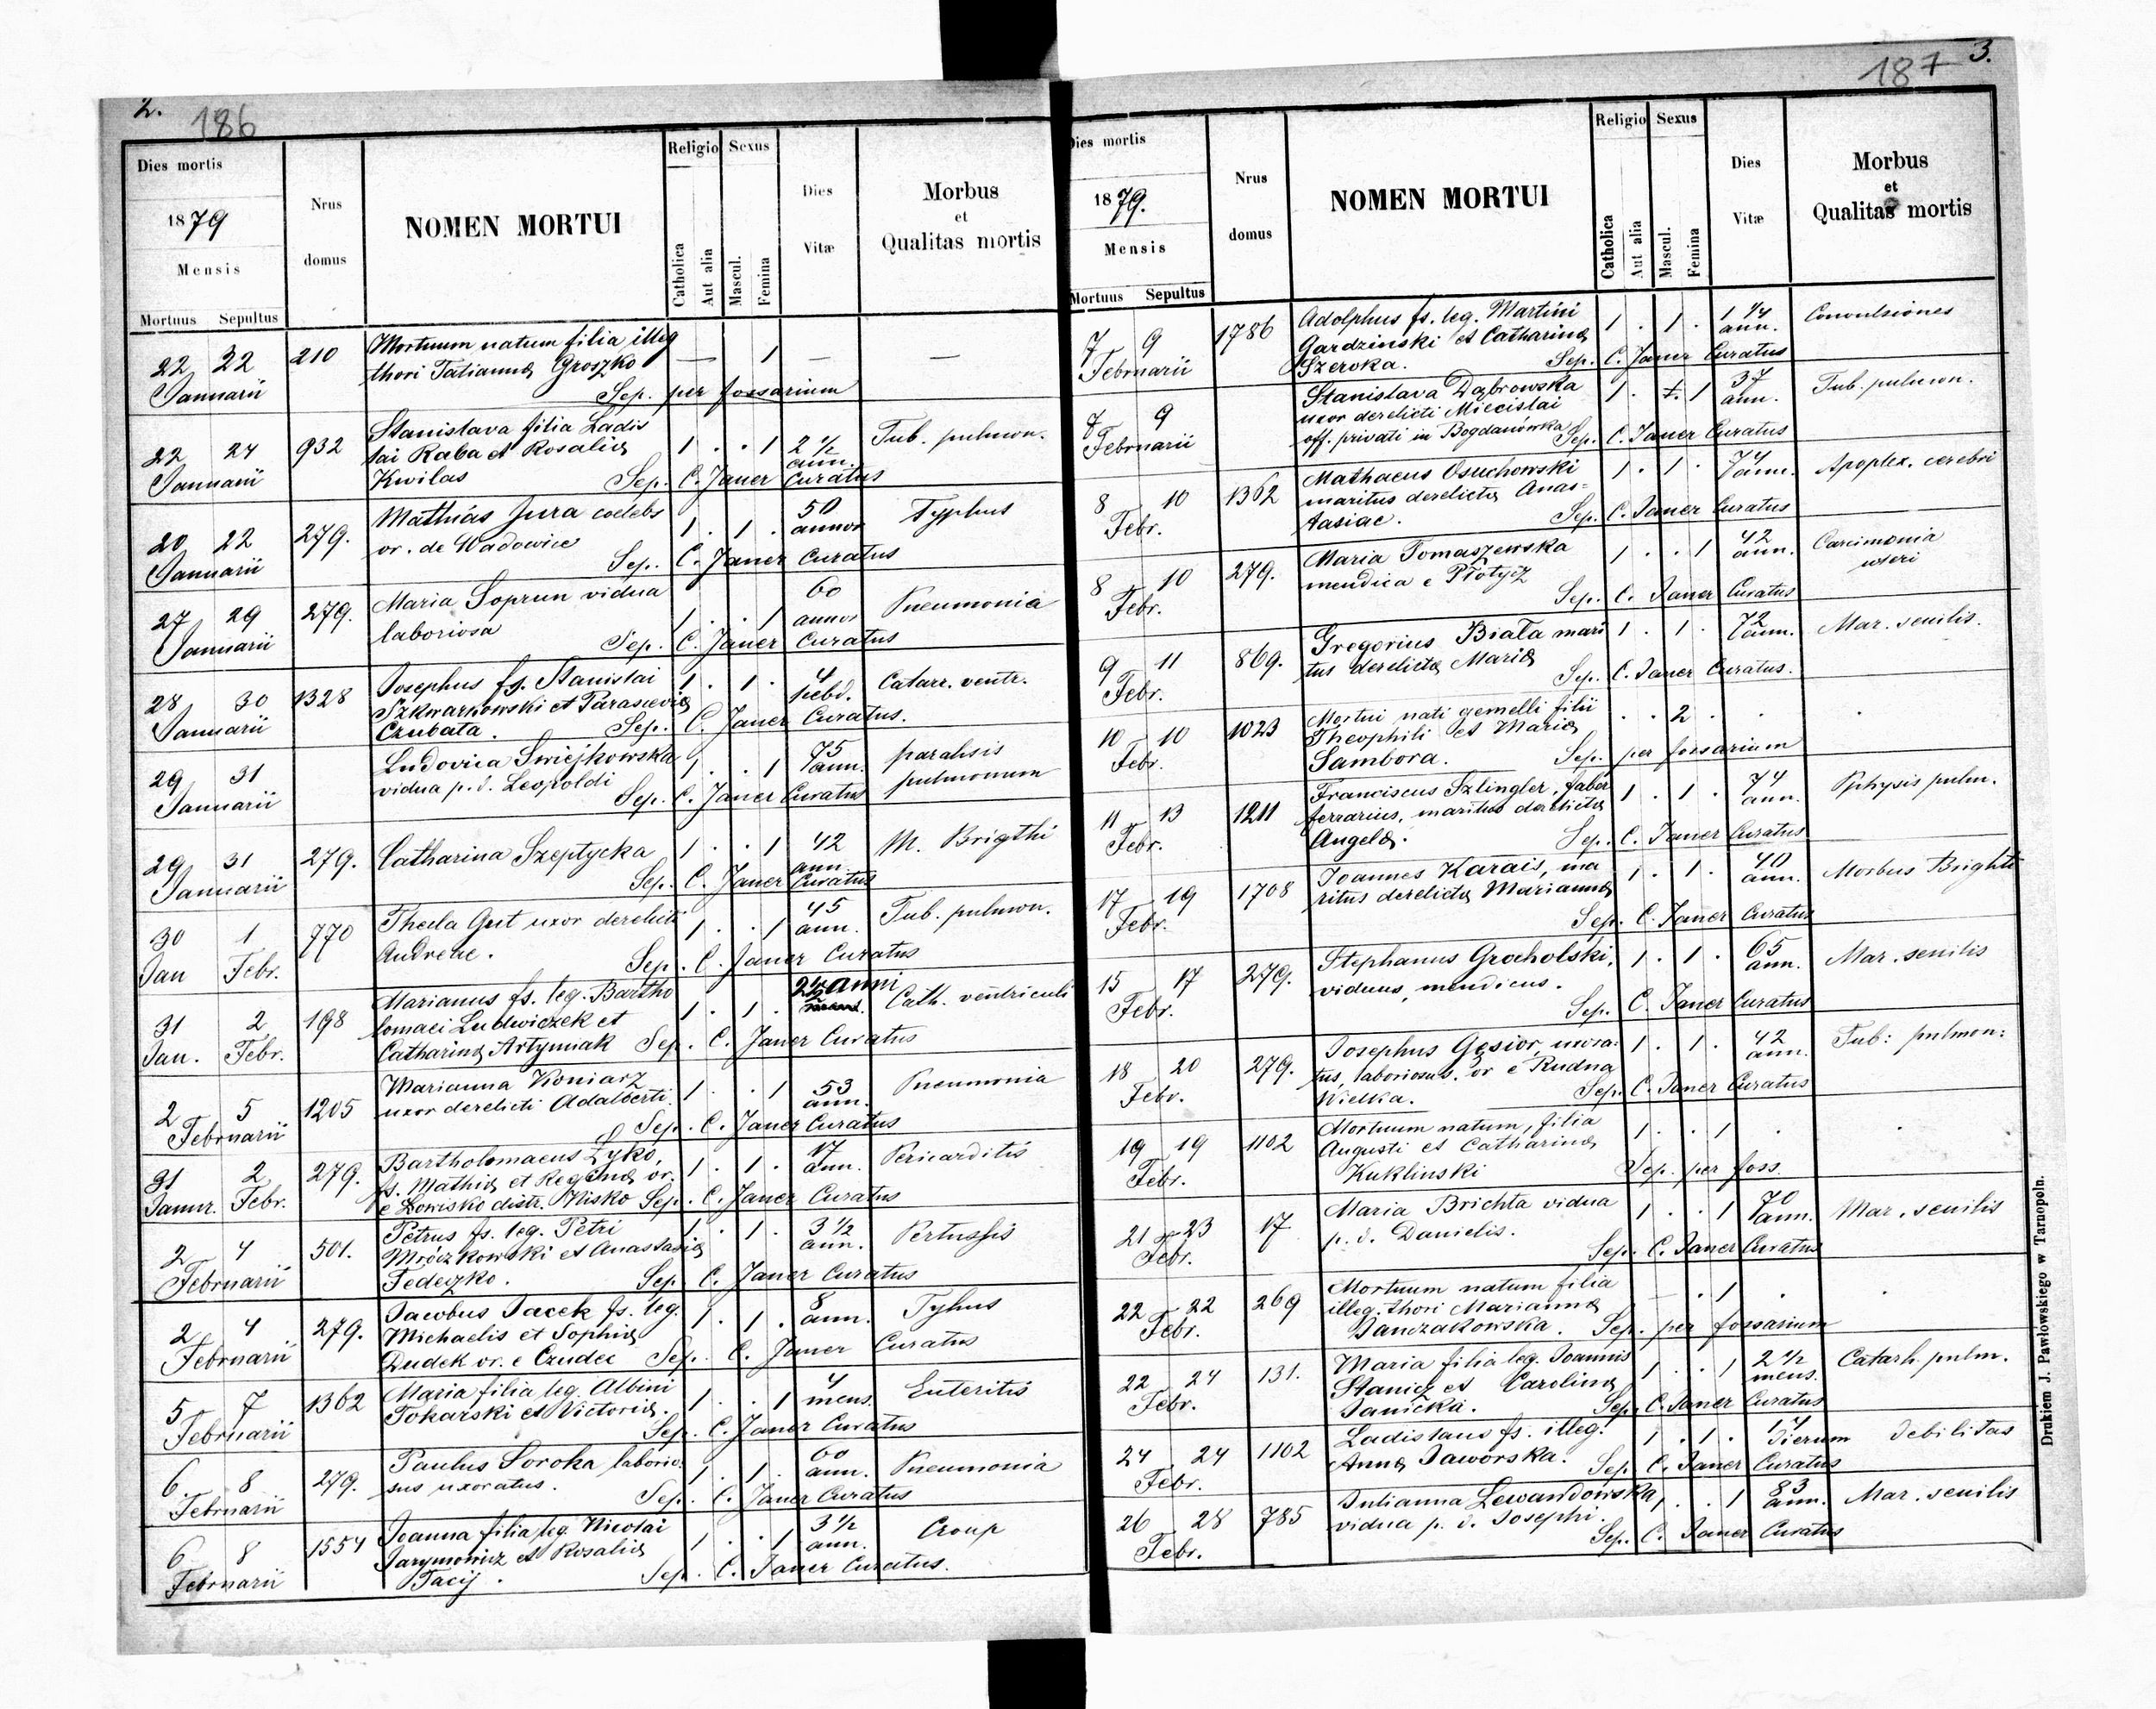 2. 186
Dies mortis
1879
Mensis
Mortuus Sepultus
Nrus domus
NOMEN MORTUI
Religio
Catholica
Aut alia
Sexus
Mascul.
Femina
Dies Vitæ
Morbus
et
Qualitas mortis
22 22 210 Mortuum natum filia illeg — 1 — —
Januarii thori Tatiannæ Groszko
Sep. per fossarium
22 24 932 Stanislava filia Ladis 1 . . 1 2 1/2 Tub. pulmon.
Januarii lai Raba et Rosaliæ ann.
Kwilas Sep. C. Janer Curatus
20 22 279. Mathias Jura coelebs 1 . 1 . 50 Typhus
Januarii or. de Wadowice annor
Sep. C. Janer Curatus
27 29 279. Maria Soprun vidua 1 . . 1 60 Pneumonia
Januarii laboriosa annor
Sep. C. Janer Curatus
28 30 1328 Josephus fs. Stanislai 1 . 1 . 4 Catarr. ventr.
Januarii Szkwarkowski et Parasceviæ hebd.
Czubata. Sep. C. Janer Curatus.
29 31 Ludovica Swiejkowska 1 . . 1 75 paralisis
Januarii vidua p. d. Leopoldi ann. pulmonum
Sep. C. Janer Curatus
29 31 279. Catharina Szeptycka 1 . . 1 42 M. Brigthi
Januarii ann.
Sep. C. Janer Curatus
30 1 770 Thecla Gut uxor derelicti 1 . . 1 45 Tub. pulmon.
Jan Febr. Andreae. ann.
Sep. C. Janer Curatus
31 2 198 Marianus fs. leg. Bartho 1 . 1 . anni Cath. ventriculi
Jan. Febr. lomaei Ludwiczek et
Catharinæ Artymiak Sep. C. Janer Curatus
2 5 1205 Marianna Koniarz 1 . . 1 53 Pneumonia
Februarii uxor derelicti Adalberti. ann.
Sep. C. Janer Curatus
31 2 279. Bartholomaeus Zyko, 1 . 1 . 17 Pericarditis
Januar. Febr. fs. Mathiæ et Reginæ or. ann.
e Łowisko distr. Nisko Sep. C. Janer Curatus
2 4 501. Petrus fs. leg. Petri 1 . 1 . 3 1/2 Pertussis
Februarii Mroczkowski et Anastasiæ ann.
Fedeczko. Sep. C. Janer Curatus
2 4 279. Jacobus Jacek fs. leg. 1 . 1 . 8 Tyhus
Februarii Michaelis et Sophiæ ann.
Dudek or. e Czudec Sep. C. Janer Curatus
5 7 1362 Maria filia leg. Albini 1 . . 1 4 Enteritis
Februarii Tokarski et Victoriæ. mens.
Sep. C. Janer Curatus
6 8 279. Paulus Soroka laborio 1 . 1 . 60 Pneumonia
Februarii sus uxoratus. ann.
Sep. C. Janer Curatus
6 8 1554 Joanna filia leg. Nicolai 1 . . 1 3 1/2 Croup
Februarii Jarymowicz et Rosaliæ ann.
Tacij. Sep. C. Janer Curatus.
187 3.
Dies mortis
1879.
Mensis
Mortuus Sepultus
Nrus domus
NOMEN MORTUI
Religio
Catholica
Aut alia
Sexus
Mascul.
Femina
Dies Vitæ
Morbus
et
Qualitas mortis
7 9 1786 Adolphus fs. leg. Martini 1 . 1 . 1 1/4 Convulsiones
Februarii Gardzinski et Catharinæ ann.
Szeroka. Sep. C. Janer Curatus
7 9 Stanislava Dąbrowska 1 . 1 37 Tub. pulmon.
Februarii uxor derelicti Miecislai ann.
off. privati in Bogdanówka Sep. C. Janer Curatus
8 10 1362 Mathaeus Osuchowski 1 . 1 . 74 Apoplex. cerebri
Febr. maritus derelictæ Anas= ann.
tasiae. Sep. C. Janer Curatus
8 10 279. Maria Tomaszewska 1 . . 1 42 Carcimonia
Febr. mendica e Płotycz ann. uteri
Sep. C. Janer Curatus
9 11 869. Gregorius Biała mari 1 . 1 . 72 Mar. senilis.
Febr. tus derelictæ Mariæ ann.
Sep. C. Janer Curatus.
10 10 1023 Mortui nati gemelli filii . . 2 . . .
Febr. Theophili et Mariæ
Sambora. Sep. per fossarium
11 13 1211 Franciscus Szlingler, faber 1 . 1 . 74 Pphysis pulm.
Febr. ferrarius, maritus derelictæ ann.
Angelæ. Sep. C. Janer Curatus
17 19 1708 Joannes Karais, ma 1 . 1 . 40 Morbus Brighti
Febr. ritus derelictæ Mariannæ ann.
Sep. C. Janer Curatus
15 17 279. Stephanus Grocholski, 1 . 1 . 65 Mar. senilis
Febr. viduus, mendicus. ann.
Sep. C. Janer Curatus
18 20 279. Josephus Gęsior, uxora 1 . 1 . 42 Tub: pulmon:
Febr. tus, laboriosus. or e Rudna ann.
Wielka. Sep. C. Janer Curatus
19 19 1102 Mortuum natum, filia 1 . . 1 . .
Febr. Augusti et Catharinæ
Kuklinski Sep. per foss.
21 23 17 Maria Brichta vidua 1 . . 1 70 Mar. senilis
Febr. p. d. Danielis. ann.
Sep. C. Janer Curatus
22 22 269 Mortuum natum filia — . 1 . .
Febr. illeg. thori Mariannæ
Janczakowska. Sep. per fossarium
22 24 131. Maria filia leg. Joannis 1 . . 1 2 1/2 Catarh. pulm.
Febr. Stanicz et Carolinæ mens.
Janicka. Sep. C. Janer Curatus
24 24 1102 Ladislaus fs. illeg. 1 . 1 . Debilitas
Febr. Annæ Jaworska. dierum
Sep. C. Janer Curatus
26 28 785 Julianna Lewandowska, 1 . . 1 83 Mar. senilis
Febr. vidua p. d. Josephi. ann.
Sep. C. Janer Curatus
Drukiem J. Pawłowskiego w Tarnopoln.